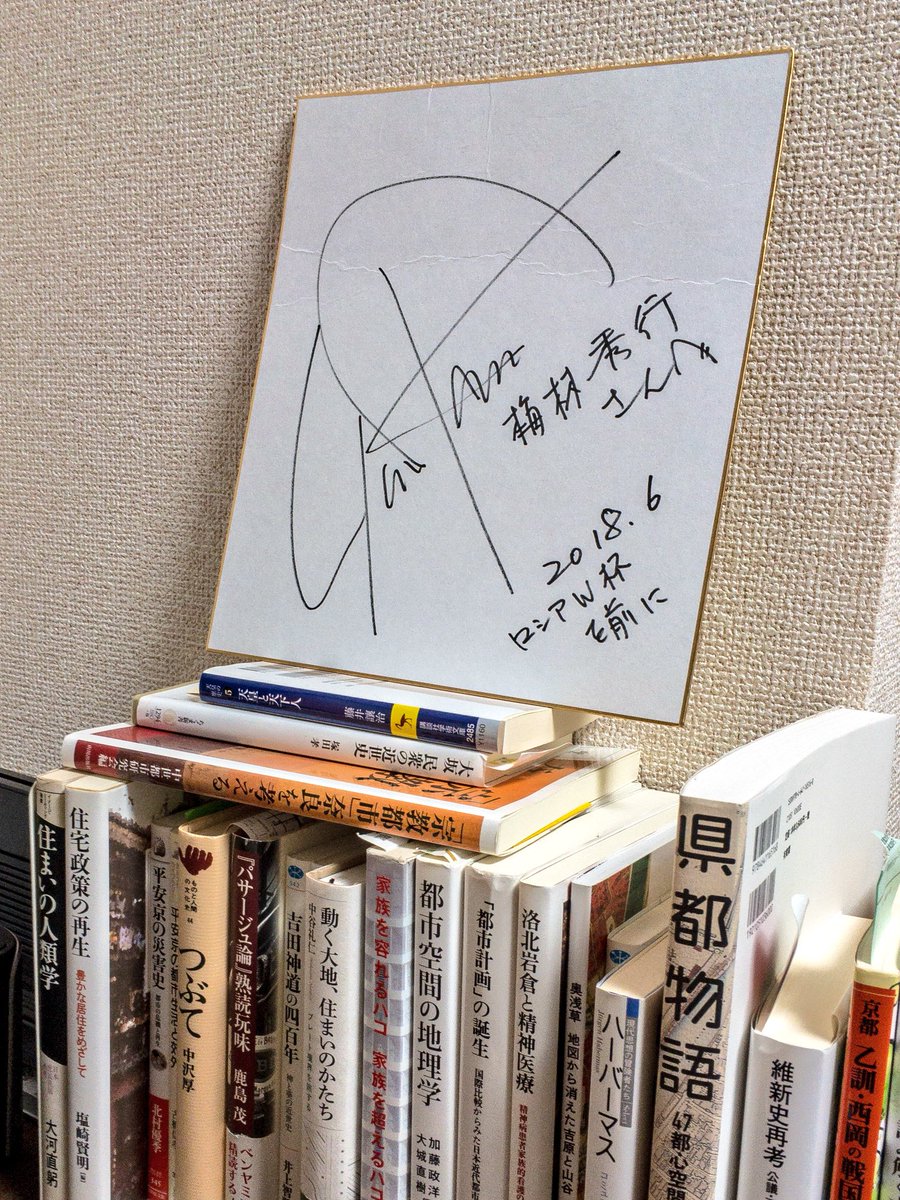 梅林秀行
さんへ
2018.6
ロシアW杯
を前に
天皇と天下人
藤井讓治
講談社学術文庫
2485
大坂民衆の近世史
塚田孝
「宗教都市」奈良を考える
中世都市研究会編
住まいの人類学
大河直躬
住宅政策の再生
豊かな居住をめざして
塩崎賢明
平安京の災害史
北村優季
ものと人間の文化史
つぶて
中沢厚
『パサージュ論』熟読玩味
鹿島 茂
吉田神道の四百年
井上智
動く大地、住まいのかたち
中谷礼仁
家族を容れるハコ 家族を超えるハコ
都市空間の地理学
加藤政洋
大城直樹
「都市計画」の誕生
国際比較からみた日本近代都市
洛北岩倉と精神医療
精神病患者家族的看護の
奥浅草 地図から消えた吉原と山谷
ハーバーマス
県都物語
47都心空間
維新史再考
京都 乙訓・西岡の戦